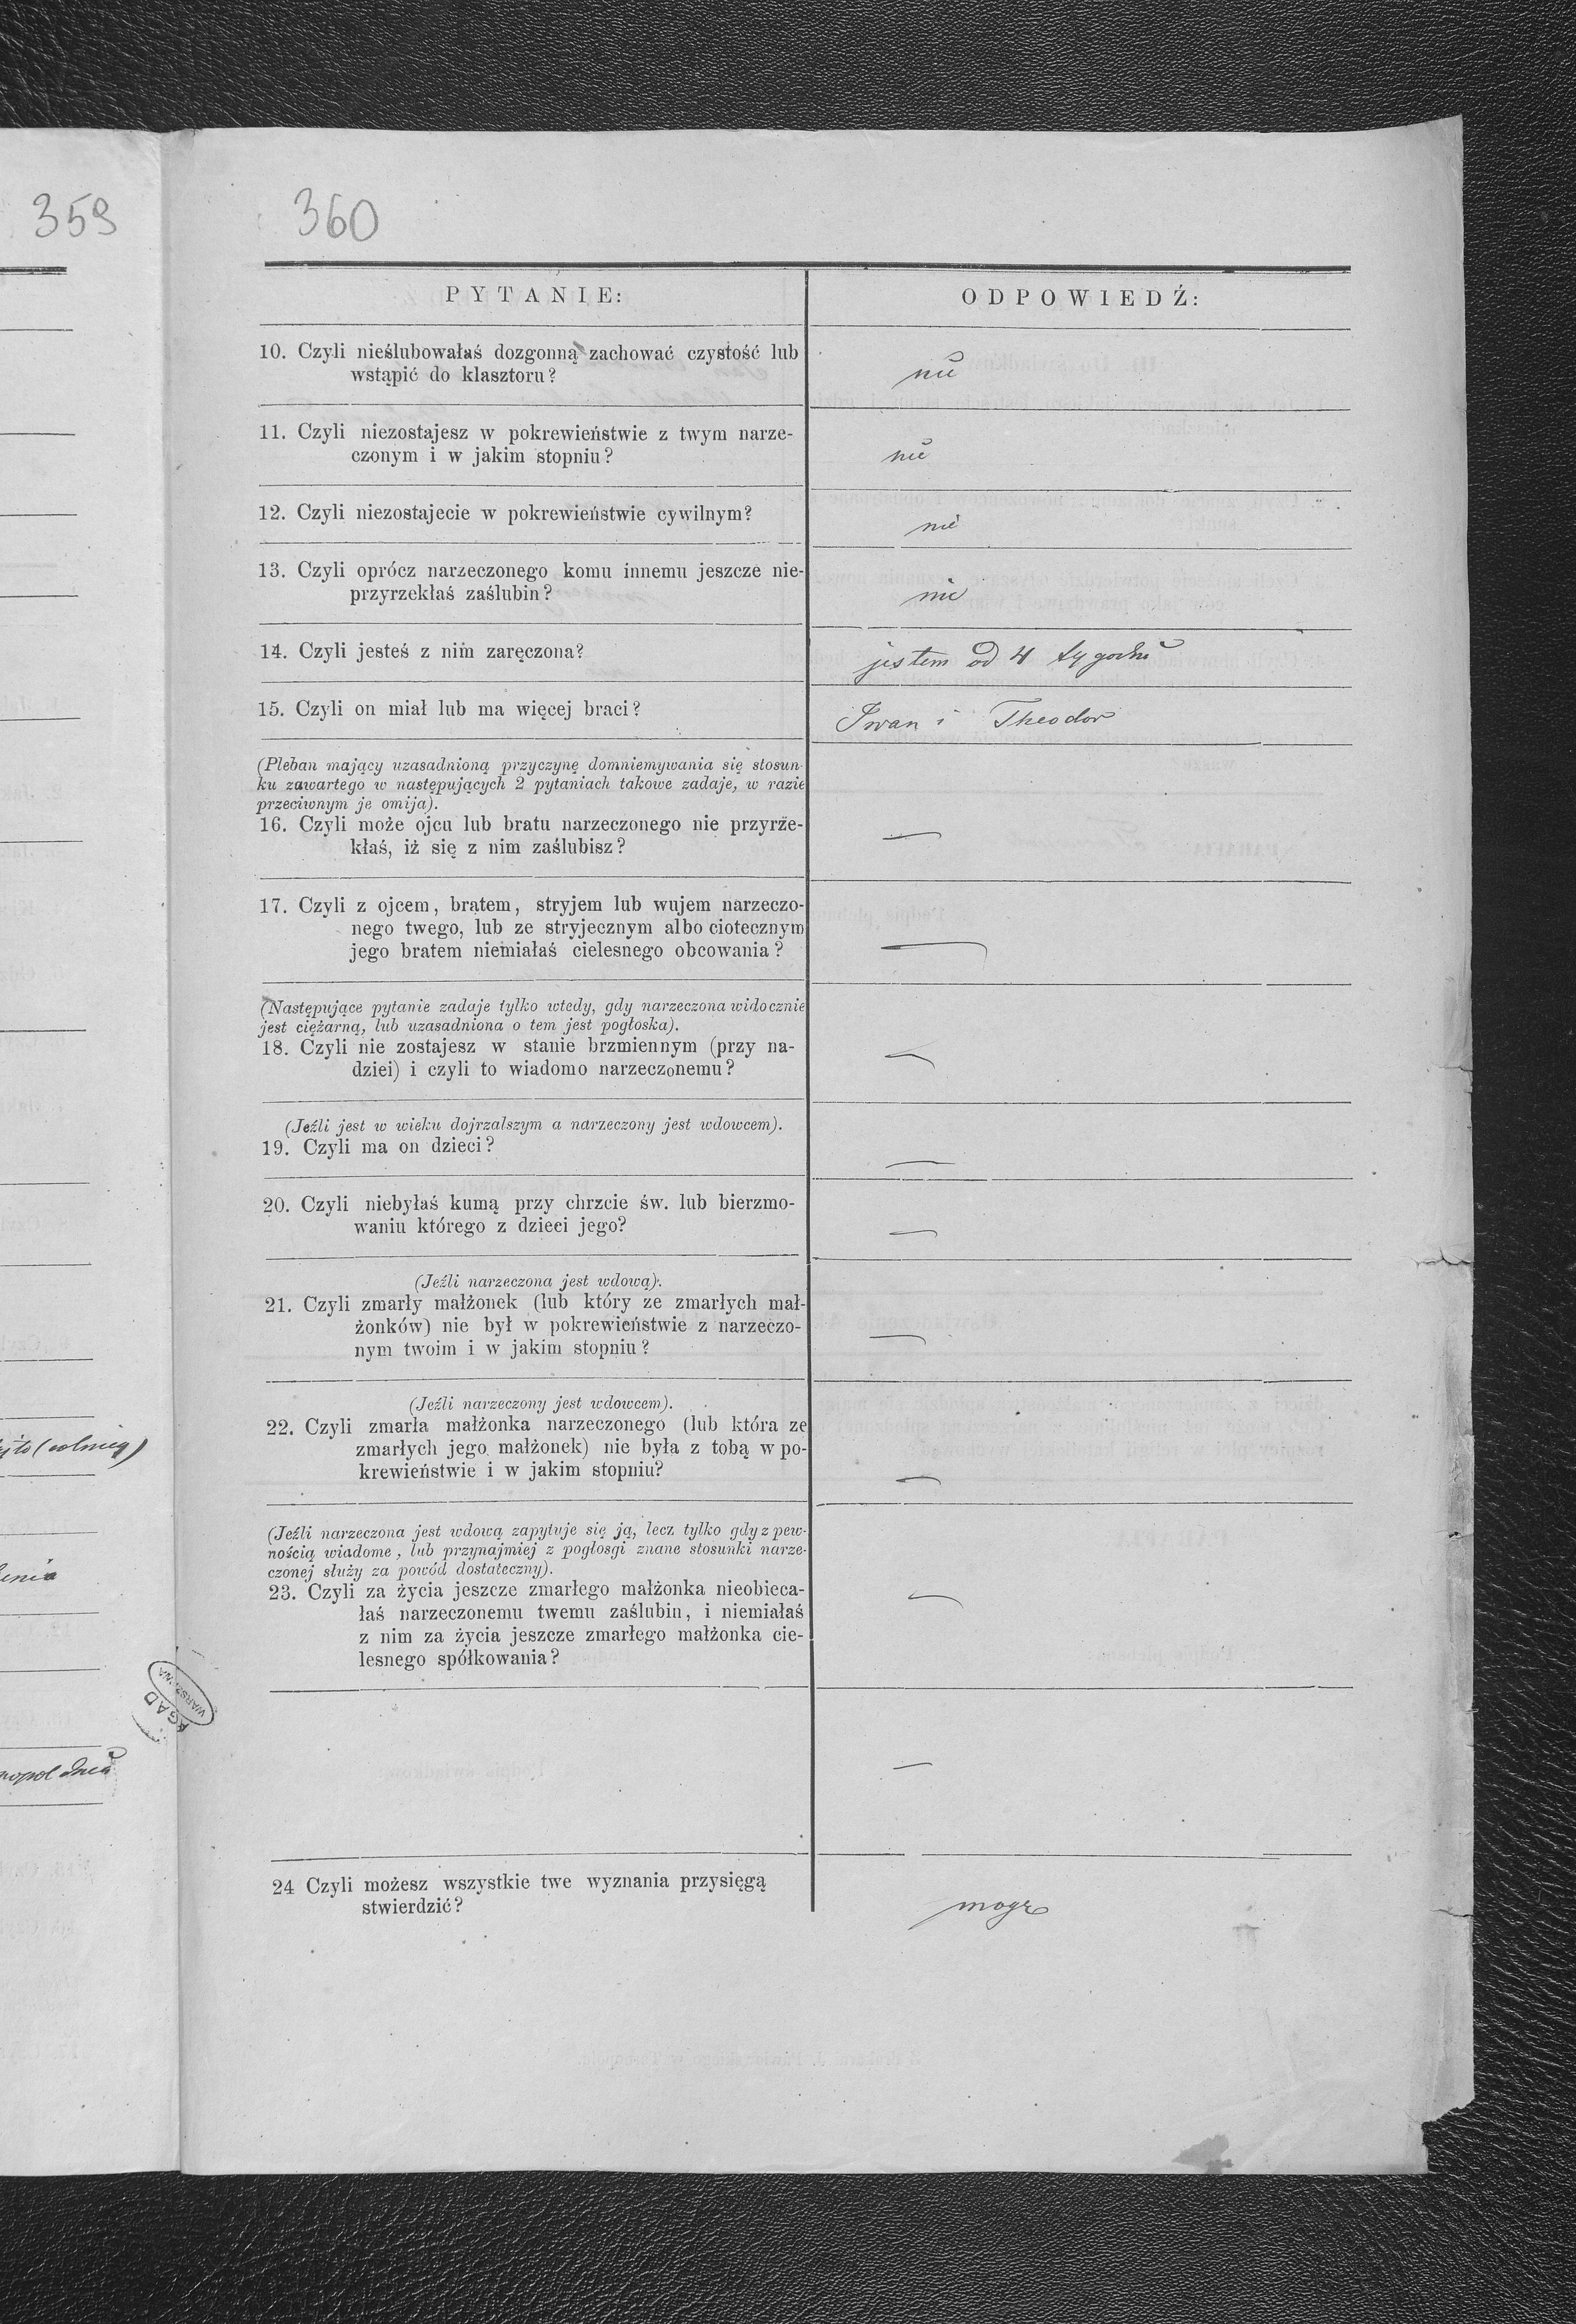 359
360
PYTANIE:
ODPOWIEDŹ:
10. Czyli nieślubowałaś dozgonną zachować czystość lub
wstąpić do klasztoru?
nie
11. Czyli niezostajesz w pokrewieństwie z twym narze-
czonym i w jakim stopniu?
nie
12. Czyli niezostajecie w pokrewieństwie cywilnym?
nie
13. Czyli oprócz narzeczonego komu innemu jeszcze nie-
przyrzekłaś zaślubin?
nie
14. Czyli jesteś z nim zaręczona?
jestem od 4 tygodni
15. Czyli on miał lub ma więcej braci?
Iwan i Theodor
(Pleban mający uzasadnioną przyczynę domniemywania się stosun-
ku zawartego w następujących 2 pytaniach takowe zadaje, w razie
przeciwnym je omija).
16. Czyli może ojcu lub bratu narzeczonego nie przyrze-
kłaś, iż się z nim zaślubisz?
—
17. Czyli z ojcem, bratem, stryjem lub wujem narzeczo-
nego twego, lub ze stryjecznym albo ciotecznym
jego bratem niemiałaś cielesnego obcowania?
—
(Następujące pytanie zadaje tylko wtedy, gdy narzeczona widocznie
jest ciężarną, lub uzasadniona o tem jest pogłoska).
18. Czyli nie zostajesz w stanie brzmiennym (przy na-
dziei) i czyli to wiadomo narzeczonemu?
—
(Jeźli jest w wieku dojrzalszym a narzeczony jest wdowcem).
19. Czyli ma on dzieci?
—
20. Czyli niebyłaś kumą przy chrzcie św. lub bierzmo-
waniu którego z dzieci jego?
—
(Jeźli narzeczona jest wdową).
21. Czyli zmarły małżonek (lub który ze zmarłych mał-
żonków) nie był w pokrewieństwie z narzeczo-
nym twoim i w jakim stopniu?
—
(Jeźli narzeczony jest wdowcem).
22. Czyli zmarła małżonka narzeczonego (lub która ze
zmarłych jego małżonek) nie była z tobą w po-
krewieństwie i w jakim stopniu?
—
(Jeźli narzeczona jest wdową zapytuje się ją, lecz tylko gdy z pew-
nością wiadome, lub przynajmiej z pogłosgi znane stosunki narze-
czonej służy za powód dostateczny).
23. Czyli za życia jeszcze zmarłego małżonka nieobieca-
łaś narzeczonemu twemu zaślubin, i niemiałaś
z nim za życia jeszcze zmarłego małżonka cie-
lesnego spółkowania?
—
AGAD
WARSZAWA
—
24 Czyli możesz wszystkie twe wyznania przysięgą
stwierdzić?
mogę